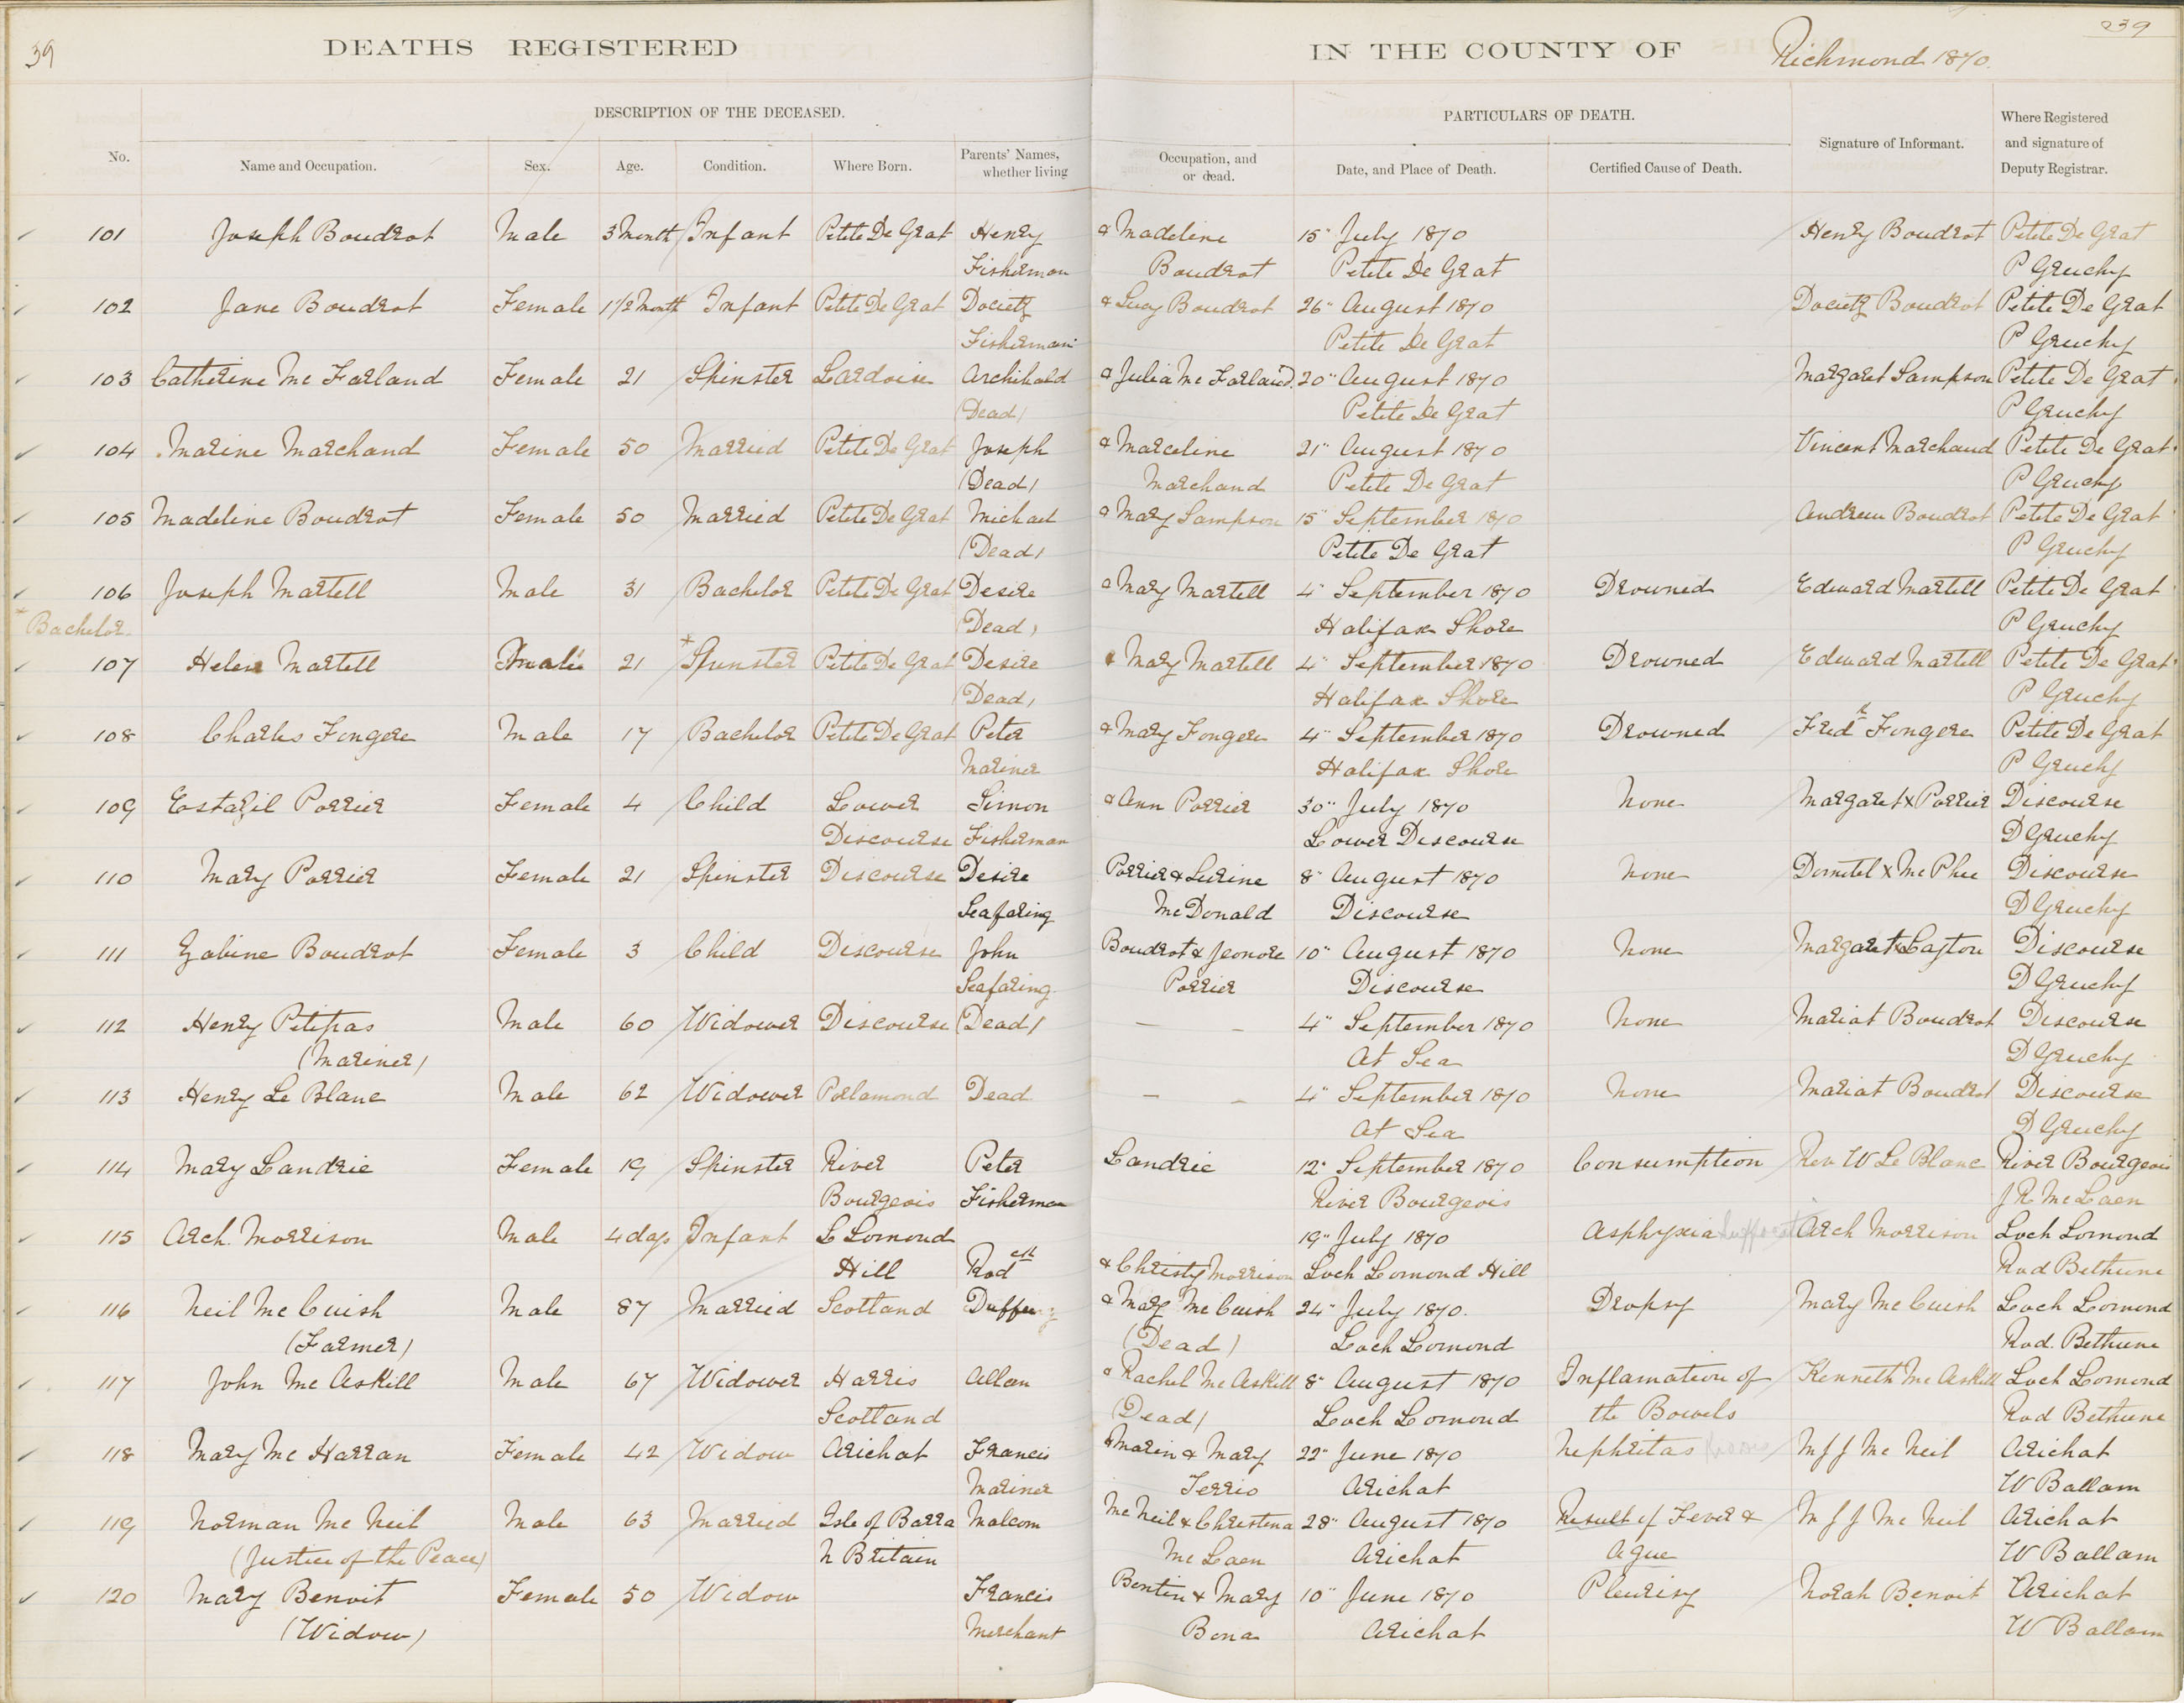 39
DEATHS REGISTERED
IN THE COUNTY OF Richmond 1870.
239
DESCRIPTION OF THE DECEASED.
PARTICULARS OF DEATH.
No. Name and Occupation. Sex. Age. Condition. Where Born. Parents' Names, whether living Occupation, and or dead. Date, and Place of Death. Certified Cause of Death. Signature of Informant. Where Registered and signature of Deputy Registrar.
101 Joseph Boudrot Male 3 Month Infant Petite De Grat Henry & Madeline 15" July 1870 Henry Boudrot Petite De Grat
Fisherman Boudrot Petite De Grat P Gruchy
102 Jane Boudrot Female 1 1/2 Month Infant Petite De Grat Docietz & Lucy Boudrot 26" August 1870 Docietz Boudrot Petite De Grat
Fisherman Petite De Grat P Gruchy
103 Catherine Mc Farland Female 21 Spinster Lardoise Archibald & Julia Mc Farland. 20" August 1870 Margaret Sampson Petite De Grat
(Dead) Petite De Grat P Gruchy
104 Marine Marchand Female 50 Married Petite De Grat Joseph & Marceline 21" August 1870 Vincent Marchand Petite De Grat
(Dead) Marchand Petite De Grat P Gruchy
105 Madeline Boudrot Female 50 Married Petite De Grat Michael & Mary Sampson 15" September 1870 Andrew Boudrot Petite De Grat
(Dead) Petite De Grat P Gruchy
106 Joseph Martell Male 31 Bachelor Petite De Grat Desire & Mary Martell 4" September 1870 Drowned Edward Martell Petite De Grat
* Bachelor (Dead) Halifax Shore P Gruchy
107 Helen Martell Male 21 * Spinster Petite De Grat Desire & Mary Martell 4" September 1870 Drowned Edward Martell Petite De Grat
(Dead) Halifax Shore P Gruchy
108 Charles Fongere Male 17 Bachelor Petite De Grat Peter & Mary Fongere 4" September 1870 Drowned Fredk Fongere Petite De Grat
Mariner Halifax Shore P Gruchy
109 Estazil Porrier Female 4 Child Lower Simon & Ann Porrier 30" July 1870 None Margaret x Porrier Discourse
Discourse Fisherman Lower Discourse D Gruchy
110 Mary Porrier Female 21 Spinster Discourse Desire Porrier & Lurine 8" August 1870 None Domitel x Mc Phee Discourse
Seafaring Mc Donald Discourse D Gruchy
111 Zabine Boudrot Female 3 Child Discourse John Boudrot & Jeonore 10" August 1870 None Margaret x Laston Discourse
Seafaring Porrier Discourse D Gruchy
112 Henry Petipas Male 60 Widower Discourse (Dead) - - 4" September 1870 None Mariat Boudrot Discourse
(Mariner) At Sea D Gruchy
113 Henry Le Blanc Male 62 Widower Porlamond Dead - - 4" September 1870 None Mariat Boudrot Discourse
At Sea D Gruchy
114 Mary Landrie Female 19 Spinster River Peter Landrie 12" September 1870 Consumption Rev W Le Blanc River Bourgeois
Bourgeois Fisherman River Bourgeois J R Mc Laen
115 Arch. Morrison Male 4 days Infant L Lomond 19" July 1870 Asphyxia Arch Morrison Loch Lomond
Hill Rod & Christy Morrison Loch Lomond Hill Rod Bethune
116 Neil Mc Cuish Male 87 Married Scotland Duffey & Mary Mc Cuish 24" July 1870. Dropsy Mary Mc Cuish Loch Lomond
(Farmer) (Dead) Loch Lomond Rod. Bethune
117 John Mc Askill Male 67 Widower Harris Allan & Rachel Mc Askill 8" August 1870 Inflamation of Kenneth Mc Askill Loch Lomond
Scotland (Dead) Loch Lomond the Bowels Rod Bethune
118 Mary Mc Harran Female 42 Widow Arichat Francis & Marin & Mary 22" June 1870 Nephritas M J J Mc Neil Arichat
Mariner Terrio Arichat W Ballam
119 Norman Mc Neil Male 63 Married Isle of Barra Malcom Mc Neil & Christina 28" August 1870 Result of Fever & M J J Mc Neil Arichat
(Justice of the Peace) N Britain Mc Laen Arichat Ague W Ballam
120 Mary Benoit Female 50 Widow Francis Bontin & Mary 10" June 1870 Pleurisy Norah Benoit Arichat
(Widow) Merchant Bona Arichat W Ballam